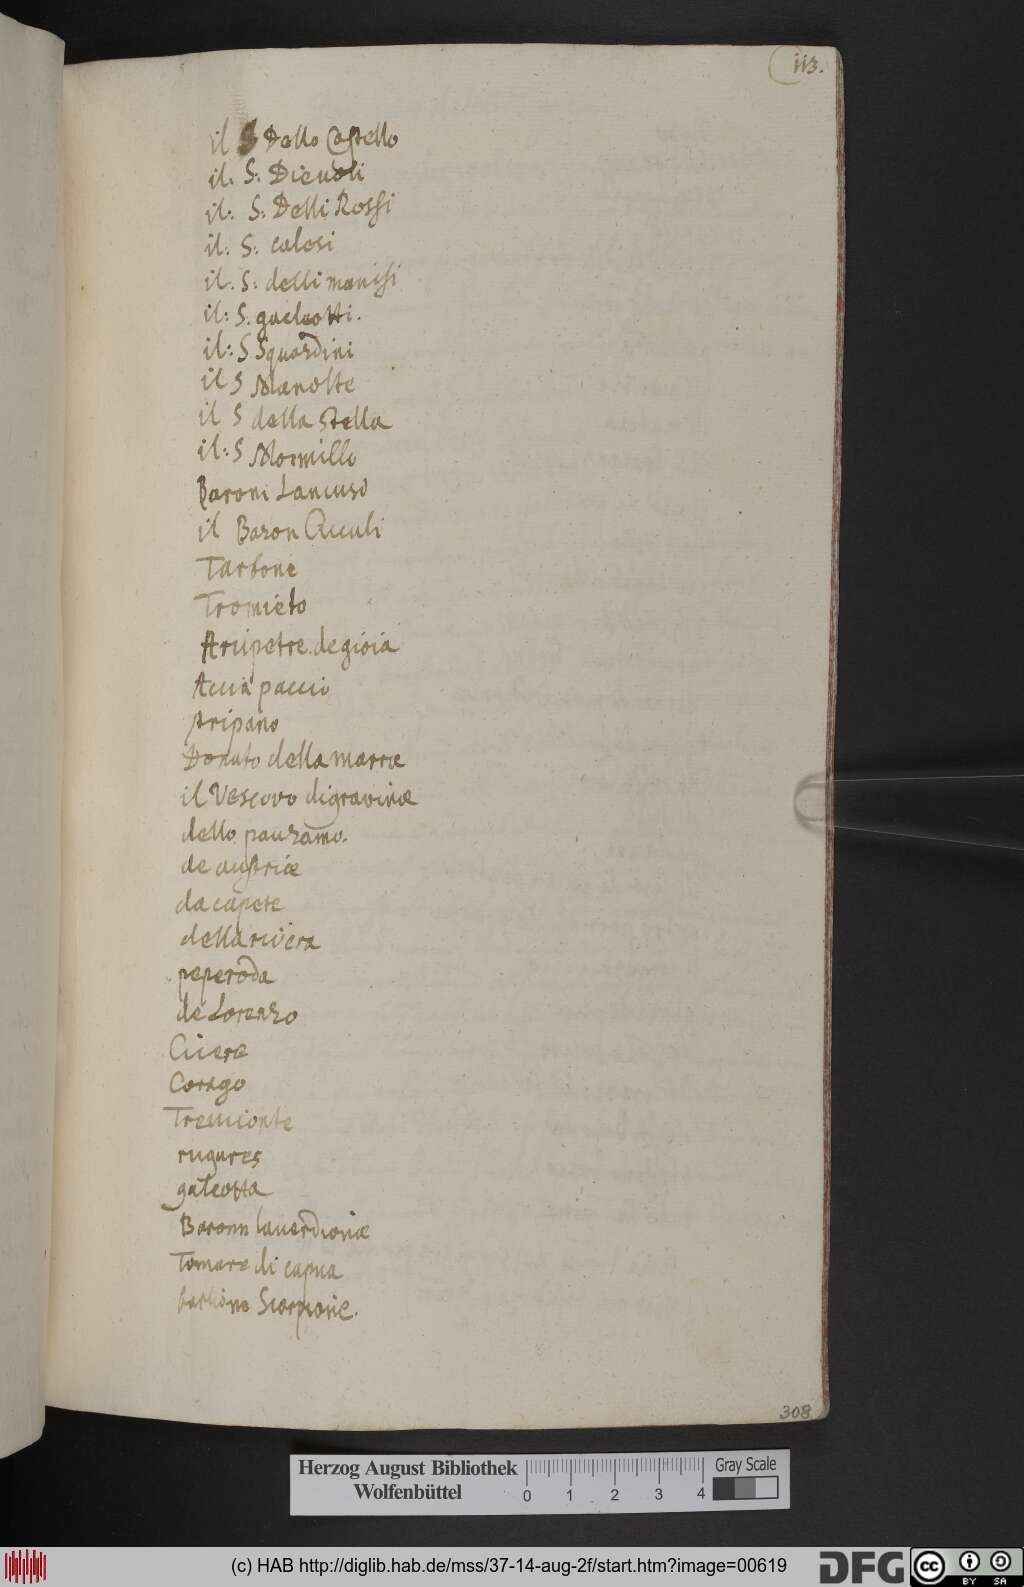 113.
il S Dello Castello
il: S: Dievoli
il: S: Delli Rossi
il: S: calesi
il: S: delli manisi
il: S: galeotti.
il: S Sguardini
il S Manolte
il S della Stella
il: S Mormillo
Baroni Lancuso
il Baron Cicculi
Tarbone
Tromieto
Arcipetre de gioia
Accia paccio
stripano
Donato della marræ
il Vescovo di gravinæ
dello pauzamo.
de austriæ
da capete
della rivera
peperoda
de Lorenzo
Ciceræ
Corago
Tremionte
rugures
galeotta
Baronn laverdionæ
Tomare di capua
Scorpione.
308
Herzog August Bibliothek
Wolfenbüttel
0 1 2 3 4
Gray Scale
(c) HAB http://diglib.hab.de/mss/37-14-aug-2f/start.htm?image=00619
DFG
cc
BY SA